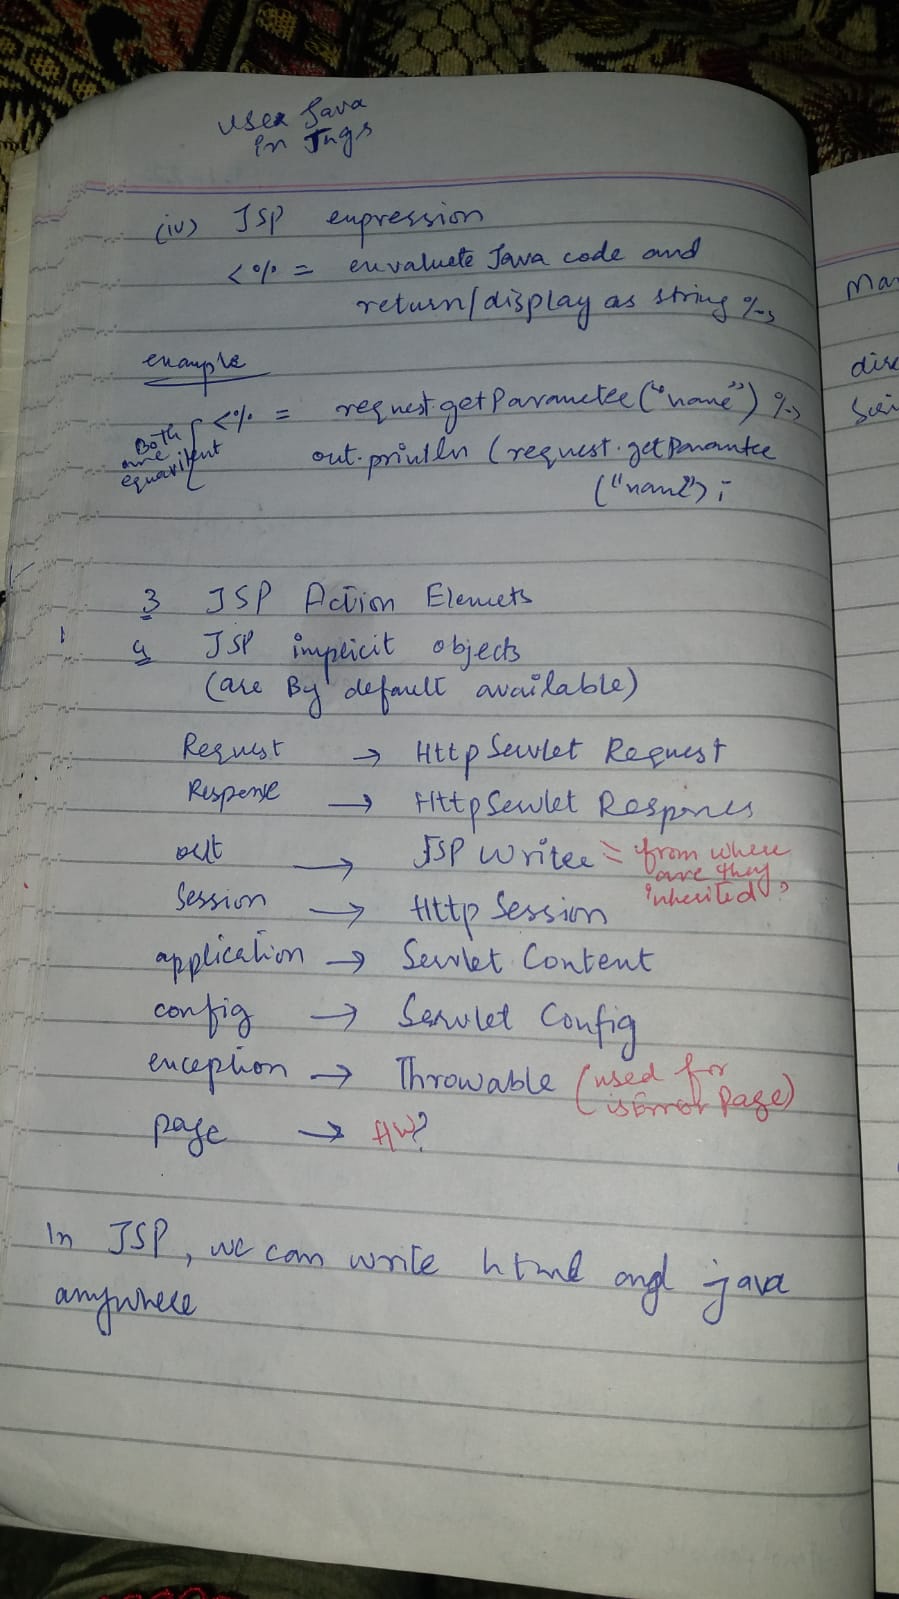 user Java
in Tags
(iv) JSP expression
<%= envaluete Java code and
return/display as string %>
example
<%= request.getParameter("name") %>
Both
are
equavilent
out.println (request.getParamter
("name");
3 JSP Action Elemets
4 JSP implicit objects
(are By default available)
Request → Http Servlet Request
Response → Http Servlet Respones
out → JSP Writer = from where
are they
inherited?
Session → Http Session
application → Servlet Content
config → Servlet Config
exception → Throwable (used for
isError Page)
page → HW?
In JSP, we can write html and java
anywhere
Mar
dire